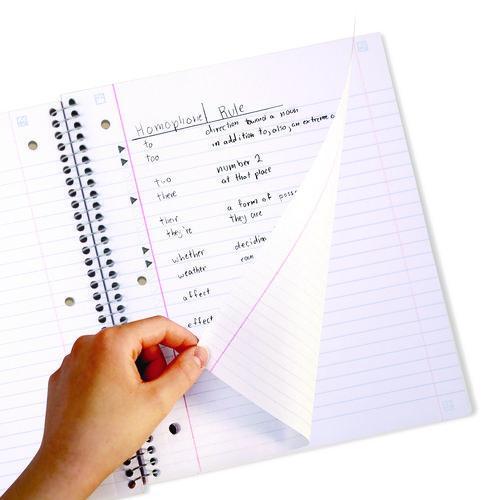 Homophone Rule
to direction toward a noun
too in addition to, also, an extreme
two number 2
there at that place
their a form of poss
they're they are
whether decidin
weather rain
affect
effect